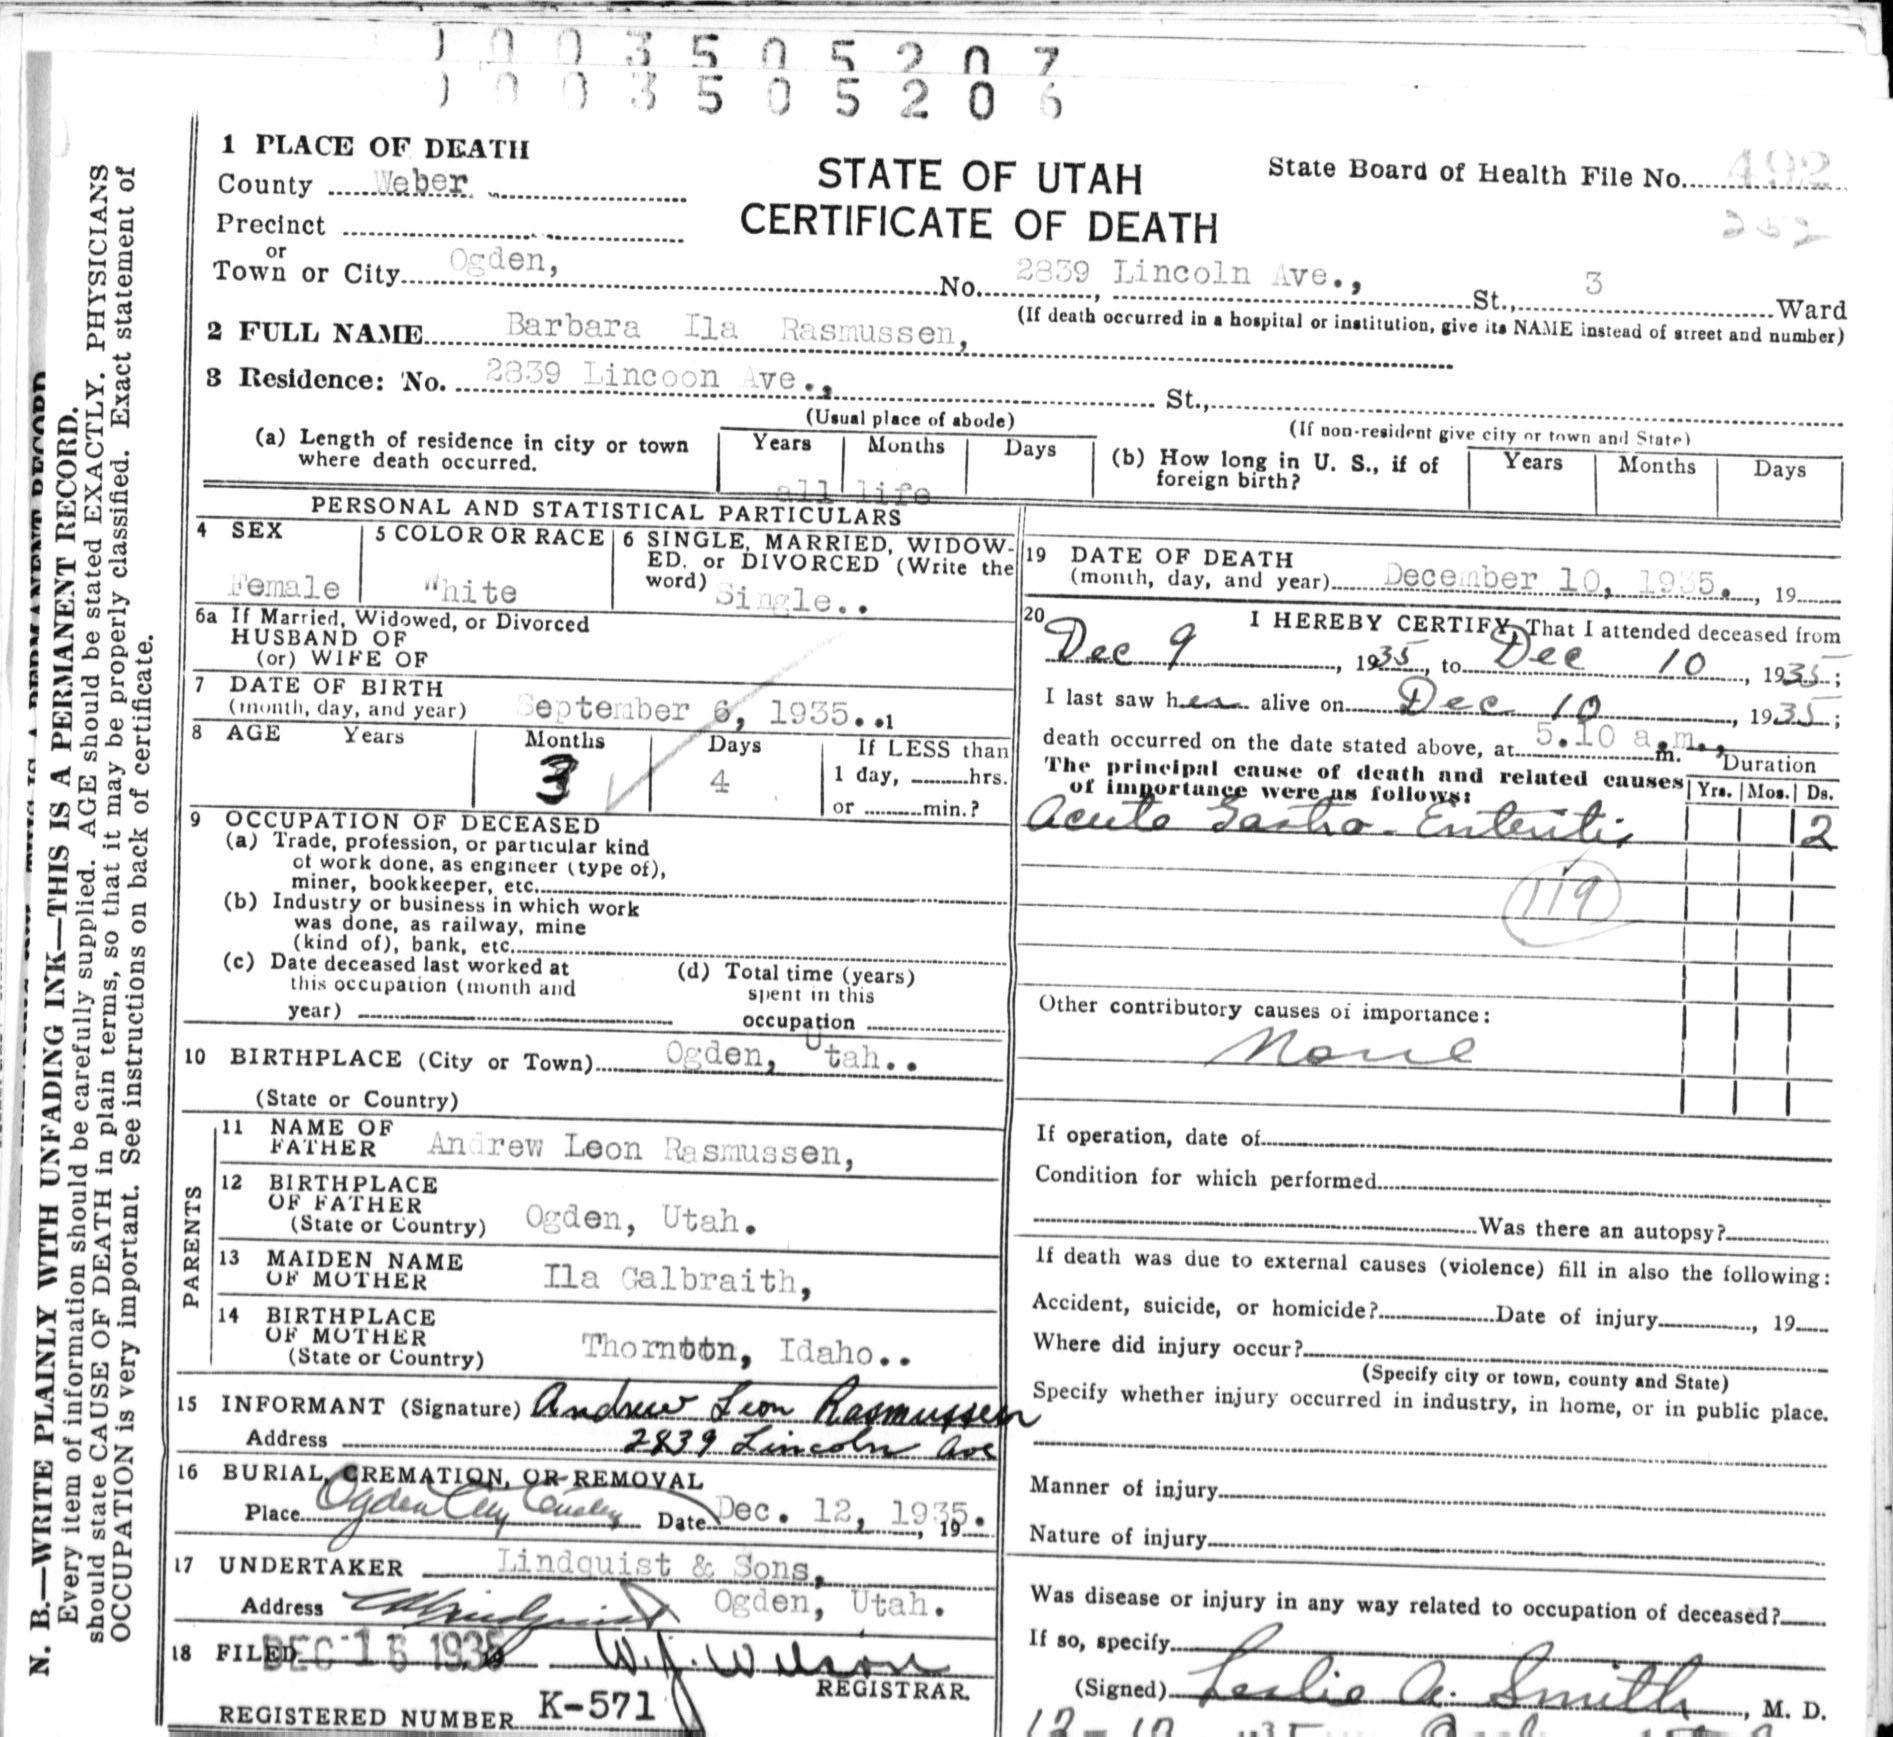 0 0 3 5 0 5 2 0 7
0 0 3 5 0 5 2 0 6
1 PLACE OF DEATH
County Weber
STATE OF UTAH
CERTIFICATE OF DEATH
State Board of Health File No. 492
252
Precinct
or
Town or City Ogden, No. 2839 Lincoln Ave., St., 3 Ward
(If death occurred in a hospital or institution, give its NAME instead of street and number)
2 FULL NAME Barbara Ila Rasmussen,
3 Residence: No. 2839 Lincoon Ave., St.,
(Usual place of abode) (If non-resident give city or town and State)
(a) Length of residence in city or town where death occurred. Years Months Days
all life
(b) How long in U. S., if of foreign birth? Years Months Days
PERSONAL AND STATISTICAL PARTICULARS
4 SEX
Female
5 COLOR OR RACE
White
6 SINGLE, MARRIED, WIDOW-
ED. or DIVORCED (Write the
word) Single..
6a If Married, Widowed, or Divorced
HUSBAND OF
(or) WIFE OF
7 DATE OF BIRTH
(month, day, and year) September 6, 1935..1
8 AGE Years Months Days If LESS than
3 4 1 day, hrs.
or min.?
9 OCCUPATION OF DECEASED
(a) Trade, profession, or particular kind
of work done, as engineer (type of),
miner, bookkeeper, etc.
(b) Industry or business in which work
was done, as railway, mine
(kind of), bank, etc.
(c) Date deceased last worked at
this occupation (month and
year)
(d) Total time (years)
spent in this
occupation
10 BIRTHPLACE (City or Town) Ogden, Utah..
(State or Country)
PARENTS
11 NAME OF
FATHER Andrew Leon Rasmussen,
12 BIRTHPLACE
OF FATHER
(State or Country) Ogden, Utah.
13 MAIDEN NAME
OF MOTHER Ila Galbraith,
14 BIRTHPLACE
OF MOTHER
(State or Country) Thornton, Idaho..
15 INFORMANT (Signature) Andrew Leon Rasmussen
Address 2839 Lincoln Ave
16 BURIAL, CREMATION, OR REMOVAL
Place Ogden City Date Dec. 12, 1935. , 19
17 UNDERTAKER Lindquist & Sons,
Address Ogden, Utah.
18 FILED DEC 16 1935 W. J. Wilson
REGISTRAR.
REGISTERED NUMBER K-571
19 DATE OF DEATH
(month, day, and year) December 10, 1935. , 19
20 I HEREBY CERTIFY, That I attended deceased from
Dec 9, 1935, to Dec 10, 1935;
I last saw her alive on Dec 10, 1935;
death occurred on the date stated above, at 5.10 a.m., m.
The principal cause of death and related causes
of importance were as follows:
Duration
Yrs. Mos. Ds.
Acute Gastro-Enteritis 2
119
Other contributory causes of importance:
None
If operation, date of
Condition for which performed
Was there an autopsy?
If death was due to external causes (violence) fill in also the following:
Accident, suicide, or homicide? Date of injury , 19
Where did injury occur?
(Specify city or town, county and State)
Specify whether injury occurred in industry, in home, or in public place.
Manner of injury
Nature of injury
Was disease or injury in any way related to occupation of deceased?
If so, specify
(Signed) Leslie A. Smith, M. D.
N. B.—WRITE PLAINLY WITH UNFADING INK—THIS IS A PERMANENT RECORD.
Every item of information should be carefully supplied. AGE should be stated EXACTLY. PHYSICIANS
should state CAUSE OF DEATH in plain terms, so that it may be properly classified. Exact statement of
OCCUPATION is very important. See instructions on back of certificate.